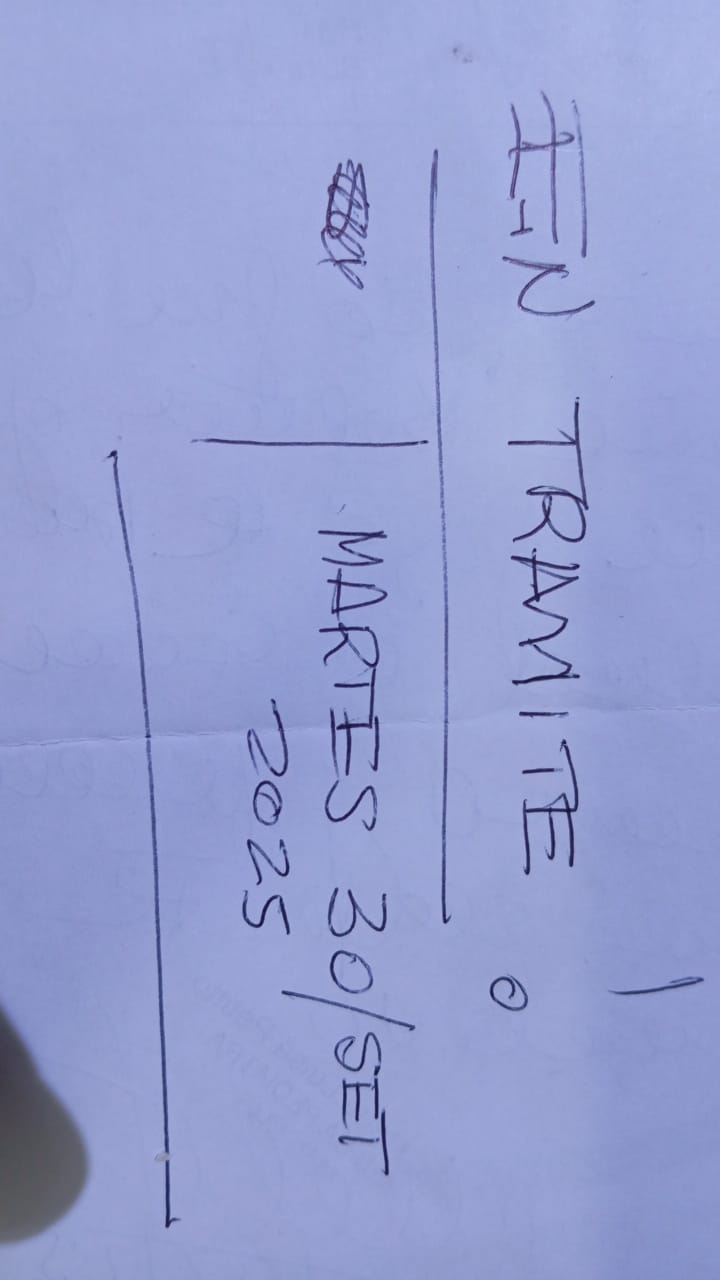 EN TRAMITE
MARTES 30/SET
2025